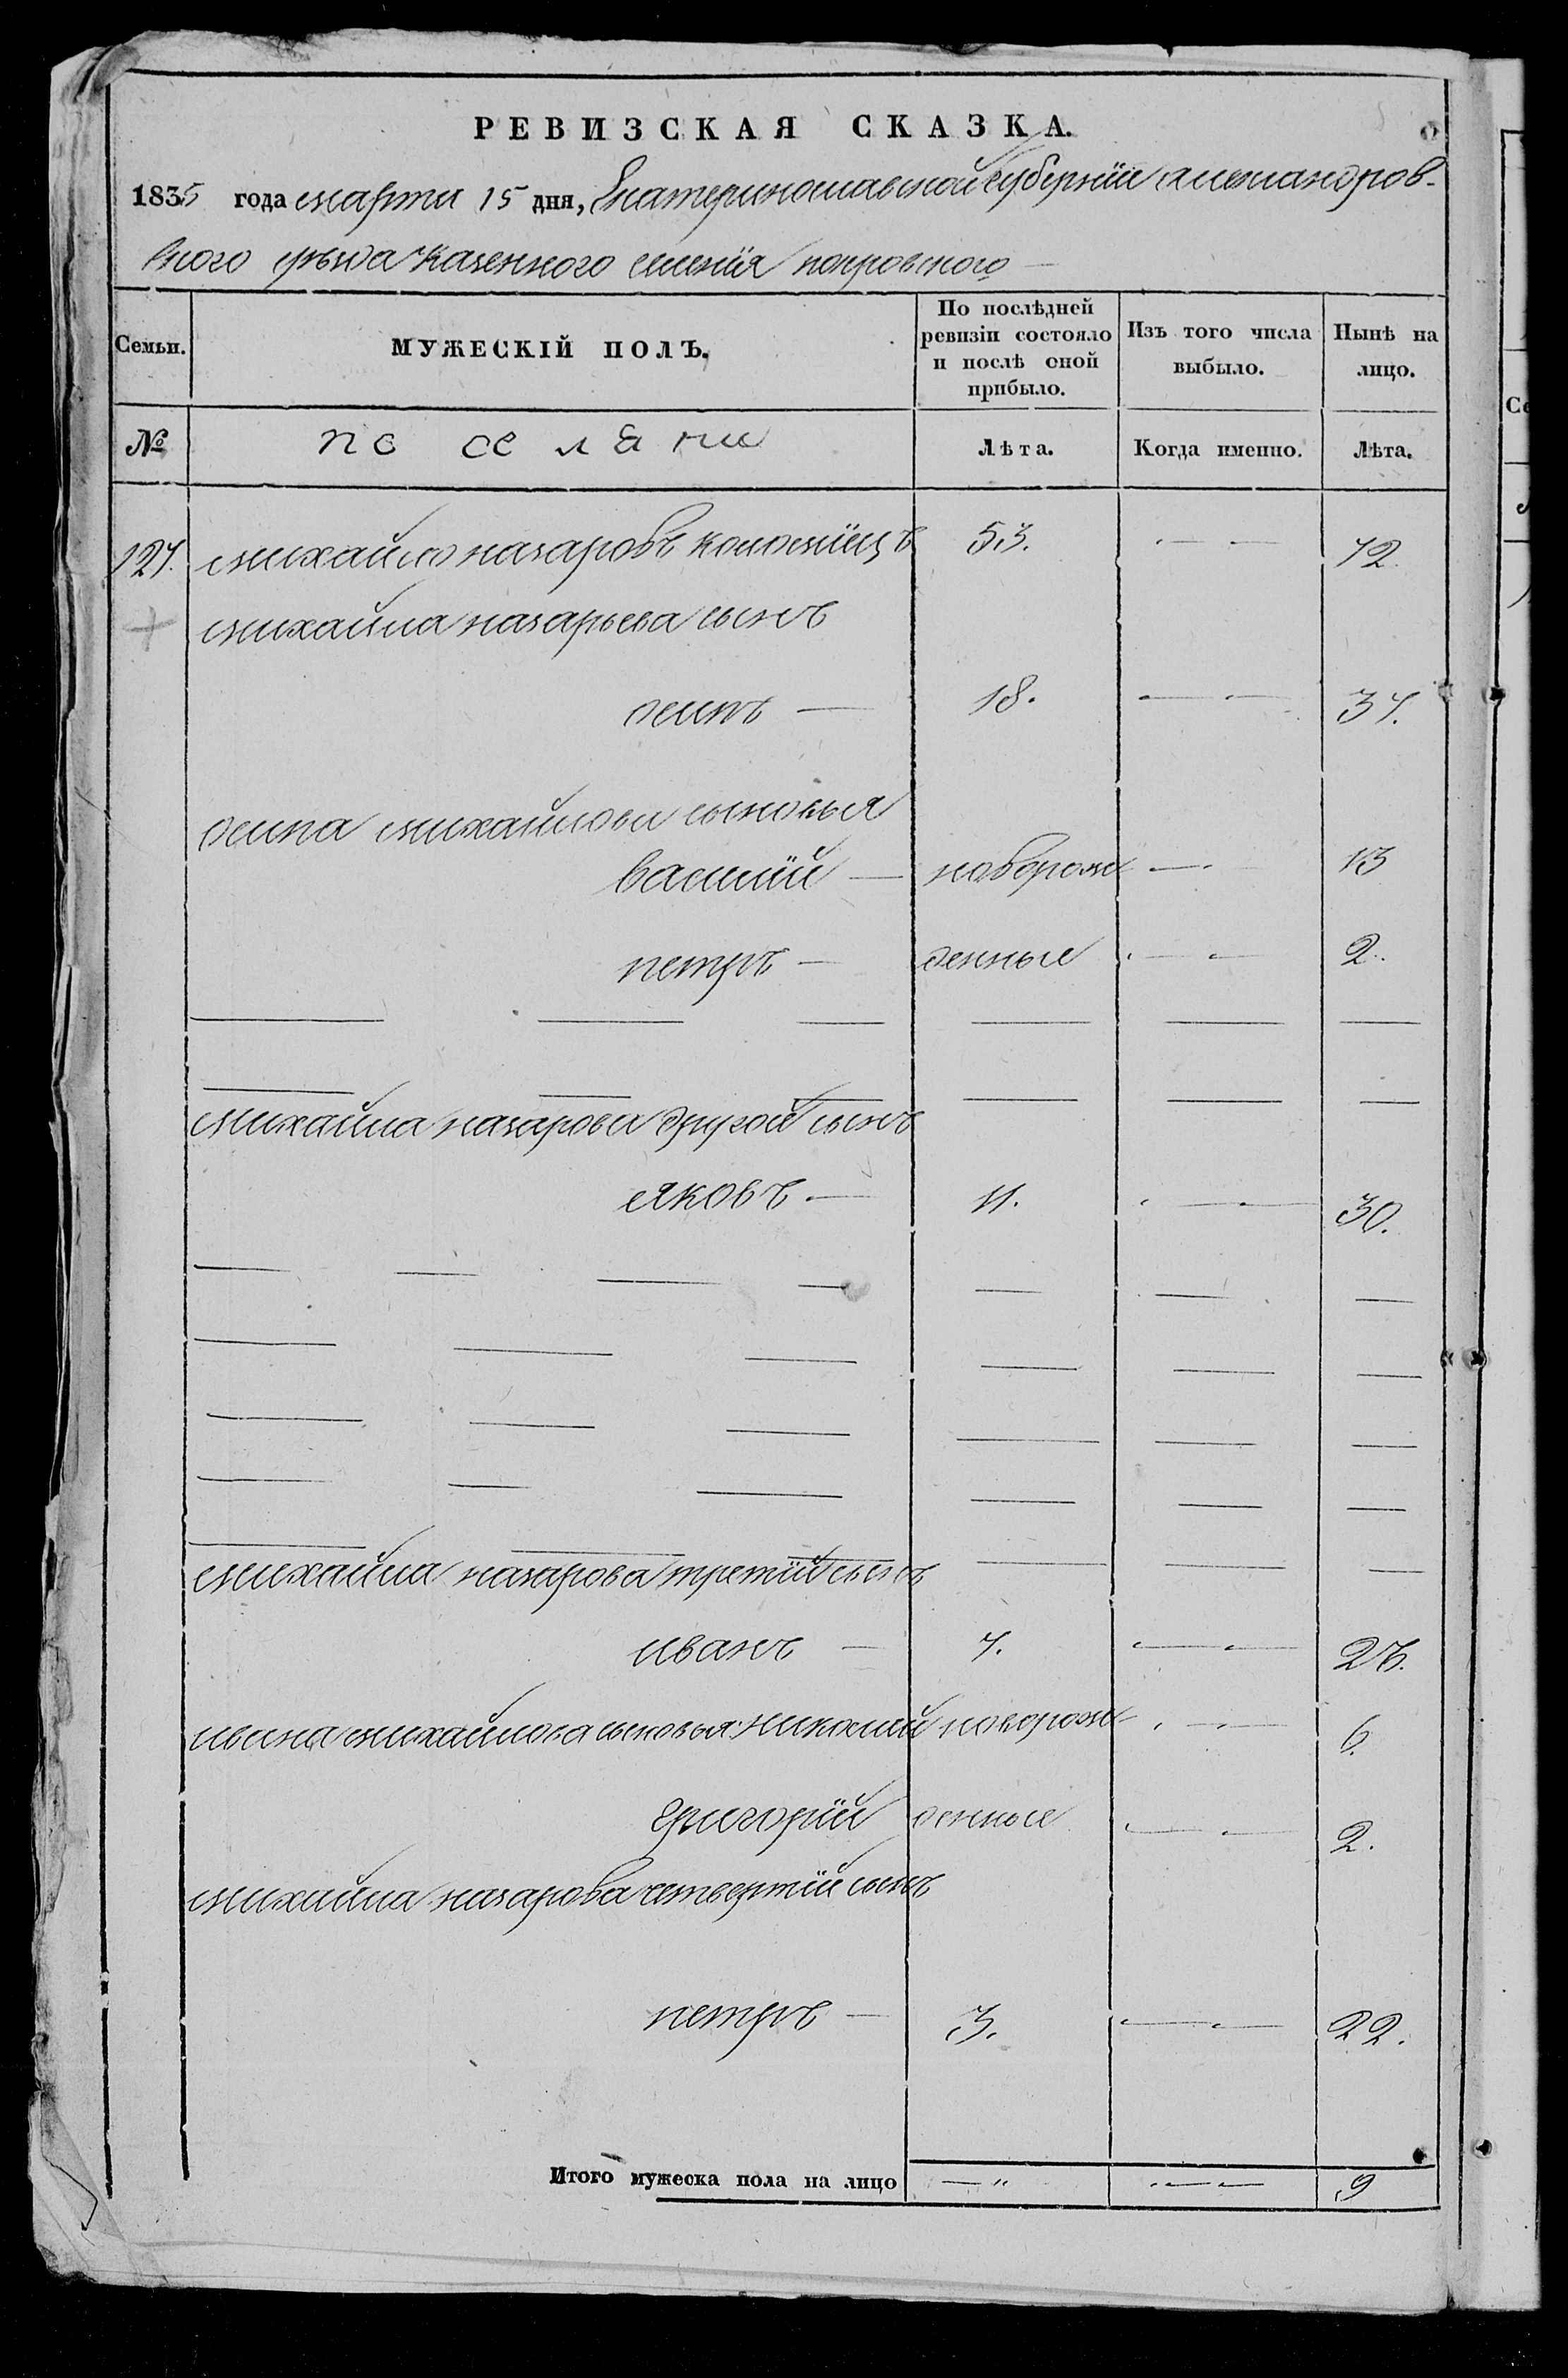 РЕВИЗСКАЯ СКАЗКА.
1835 года марта 15 дня, Екатеринославской губернии александров-
ского уѣзда казенного селения покровского
Семьи. МУЖЕСКІЙ ПОЛЪ. По послѣдней ревизіи состояло и послѣ оной прибыло. Изъ того числа выбыло. Нынѣ на лицо.
№ поселяни Лѣта. Когда именно. Лѣта.
127. михайло назаровъ 53. 72.
михайла назарьева сынъ
осипъ — 18. 37.
осипа михайлова сыновья
василий — новорож 13
петръ — денные 2.
михайла назарова другой сынъ
яковъ — 11. 30.
михайла назарова третий сынъ
иванъ — 7. 26.
ивана михайлова сыновья: николай новорож 6.
григорий денные 2.
михайла назарова четвертий сынъ
петръ — 3. 22.
Итого мужеска пола на лицо — " 9